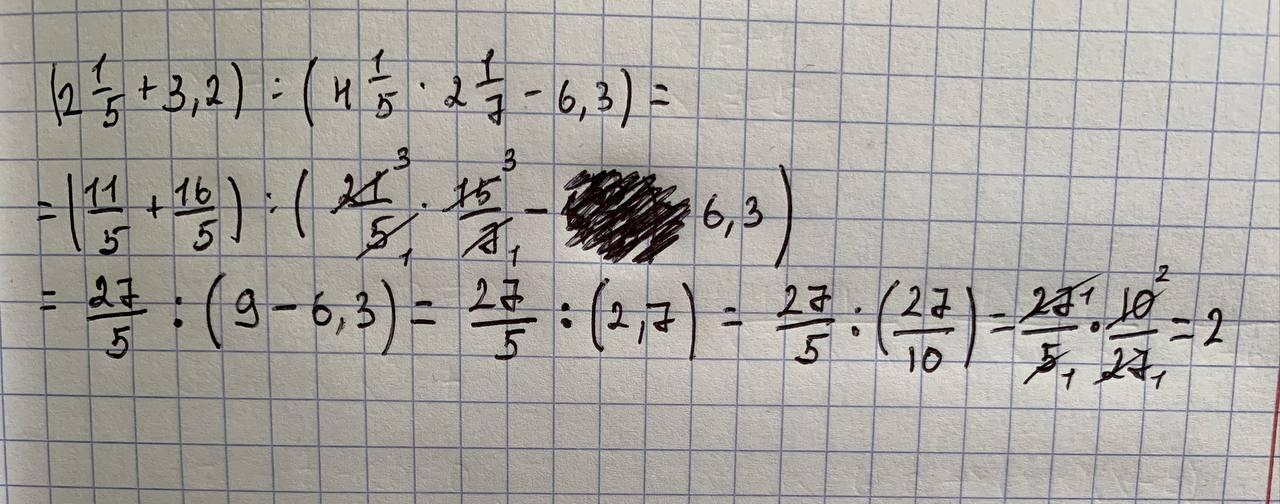 (2 1/5 + 3,2) : (4 1/5 · 2 1/7 - 6,3) =
= (11/5 + 16/5) : (21/5 3 1 · 15/7 3 1 - 6,3)
= 27/5 : (9 - 6,3) = 27/5 : (2,7) = 27/5 : (27/10) = 27/5 1 1 · 10/27 2 1 = 2